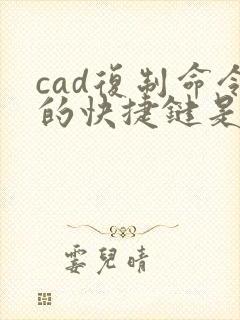 cad復制命令
的快捷鍵是
霎兒晴